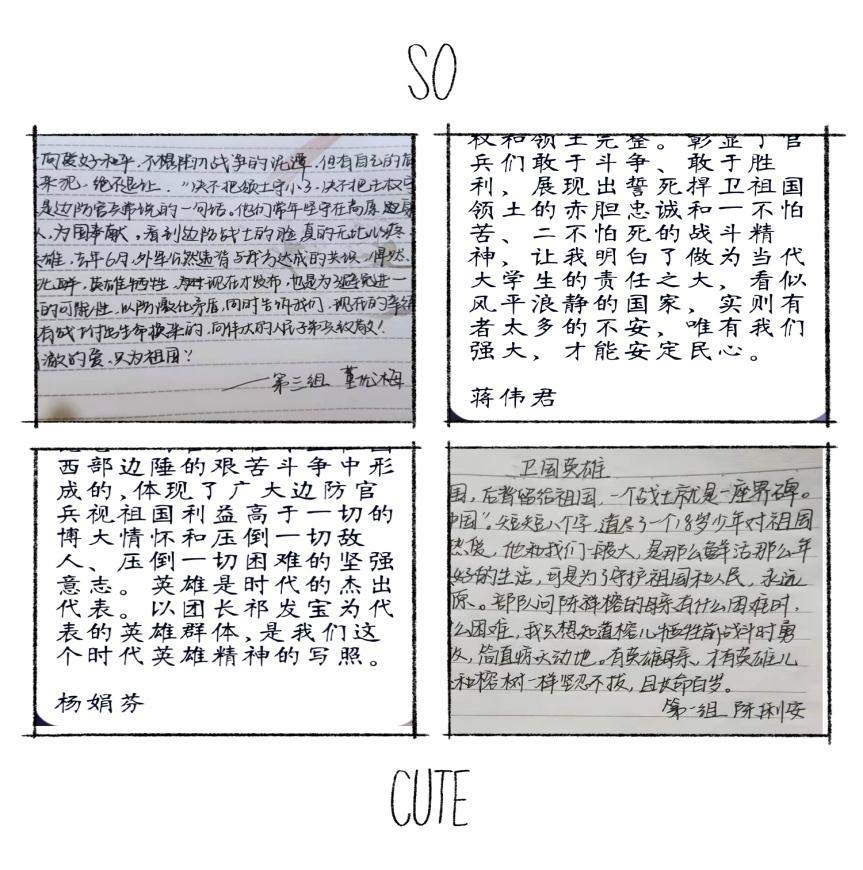 SO
向爱好和平，不想陷入战争的泥潭，但有自己的底
来犯，绝不退让。"决不把领土守小了，决不把主权守
是边防官兵常说的一句话。他们常年坚守在高原边
人，为国奉献，看到边防战士的脸真的无比心疼
雄，去年6月，外军公然违背与我方达成的共识，悍然
英雄牺牲，现在才发布，也是为了避免进一
的可能性，以防激化矛盾，同时告诉我们，现在的幸福
有战士付出生命换来的，向伟大的人民子弟兵致敬！
澈的爱，只为祖国？
——第三组
权和领土完整。彰显了官
兵们敢于斗争、敢于胜
利，展现出誓死捍卫祖国
领土的赤胆忠诚和一不怕
苦、二不怕死的战斗精
神，让我明白了做为当代
大学生的责任之大，看似
风平浪静的国家，实则有
者太多的不安，唯有我们
强大，才能安定民心。
蒋伟君
西部边陲的艰苦斗争中形
成的，体现了广大边防官
兵视祖国利益高于一切的
博大情怀和压倒一切敌
人、压倒一切困难的坚强
意志。英雄是时代的杰出
代表。以团长祁发宝为代
表的英雄群体，是我们这
个时代英雄精神的写照。
杨娟芬
卫国英雄
国，后背留给祖国，一个战士就是一座界碑。
中国"。短短八个字，道尽了一个18岁少年对祖国
热爱，他和我们一般大，是那么鲜活那么年
好的生活，可是为了守护祖国和人民，永远
原。部队问陈祥榕的母亲有什么困难时，
么困难，我只想知道榕儿牺牲前战斗时勇
敢，简直惊天动地。有英雄母亲，才有英雄儿
和榕树一样坚忍不拔，且长命百岁。
第一组 陈利安
CUTE